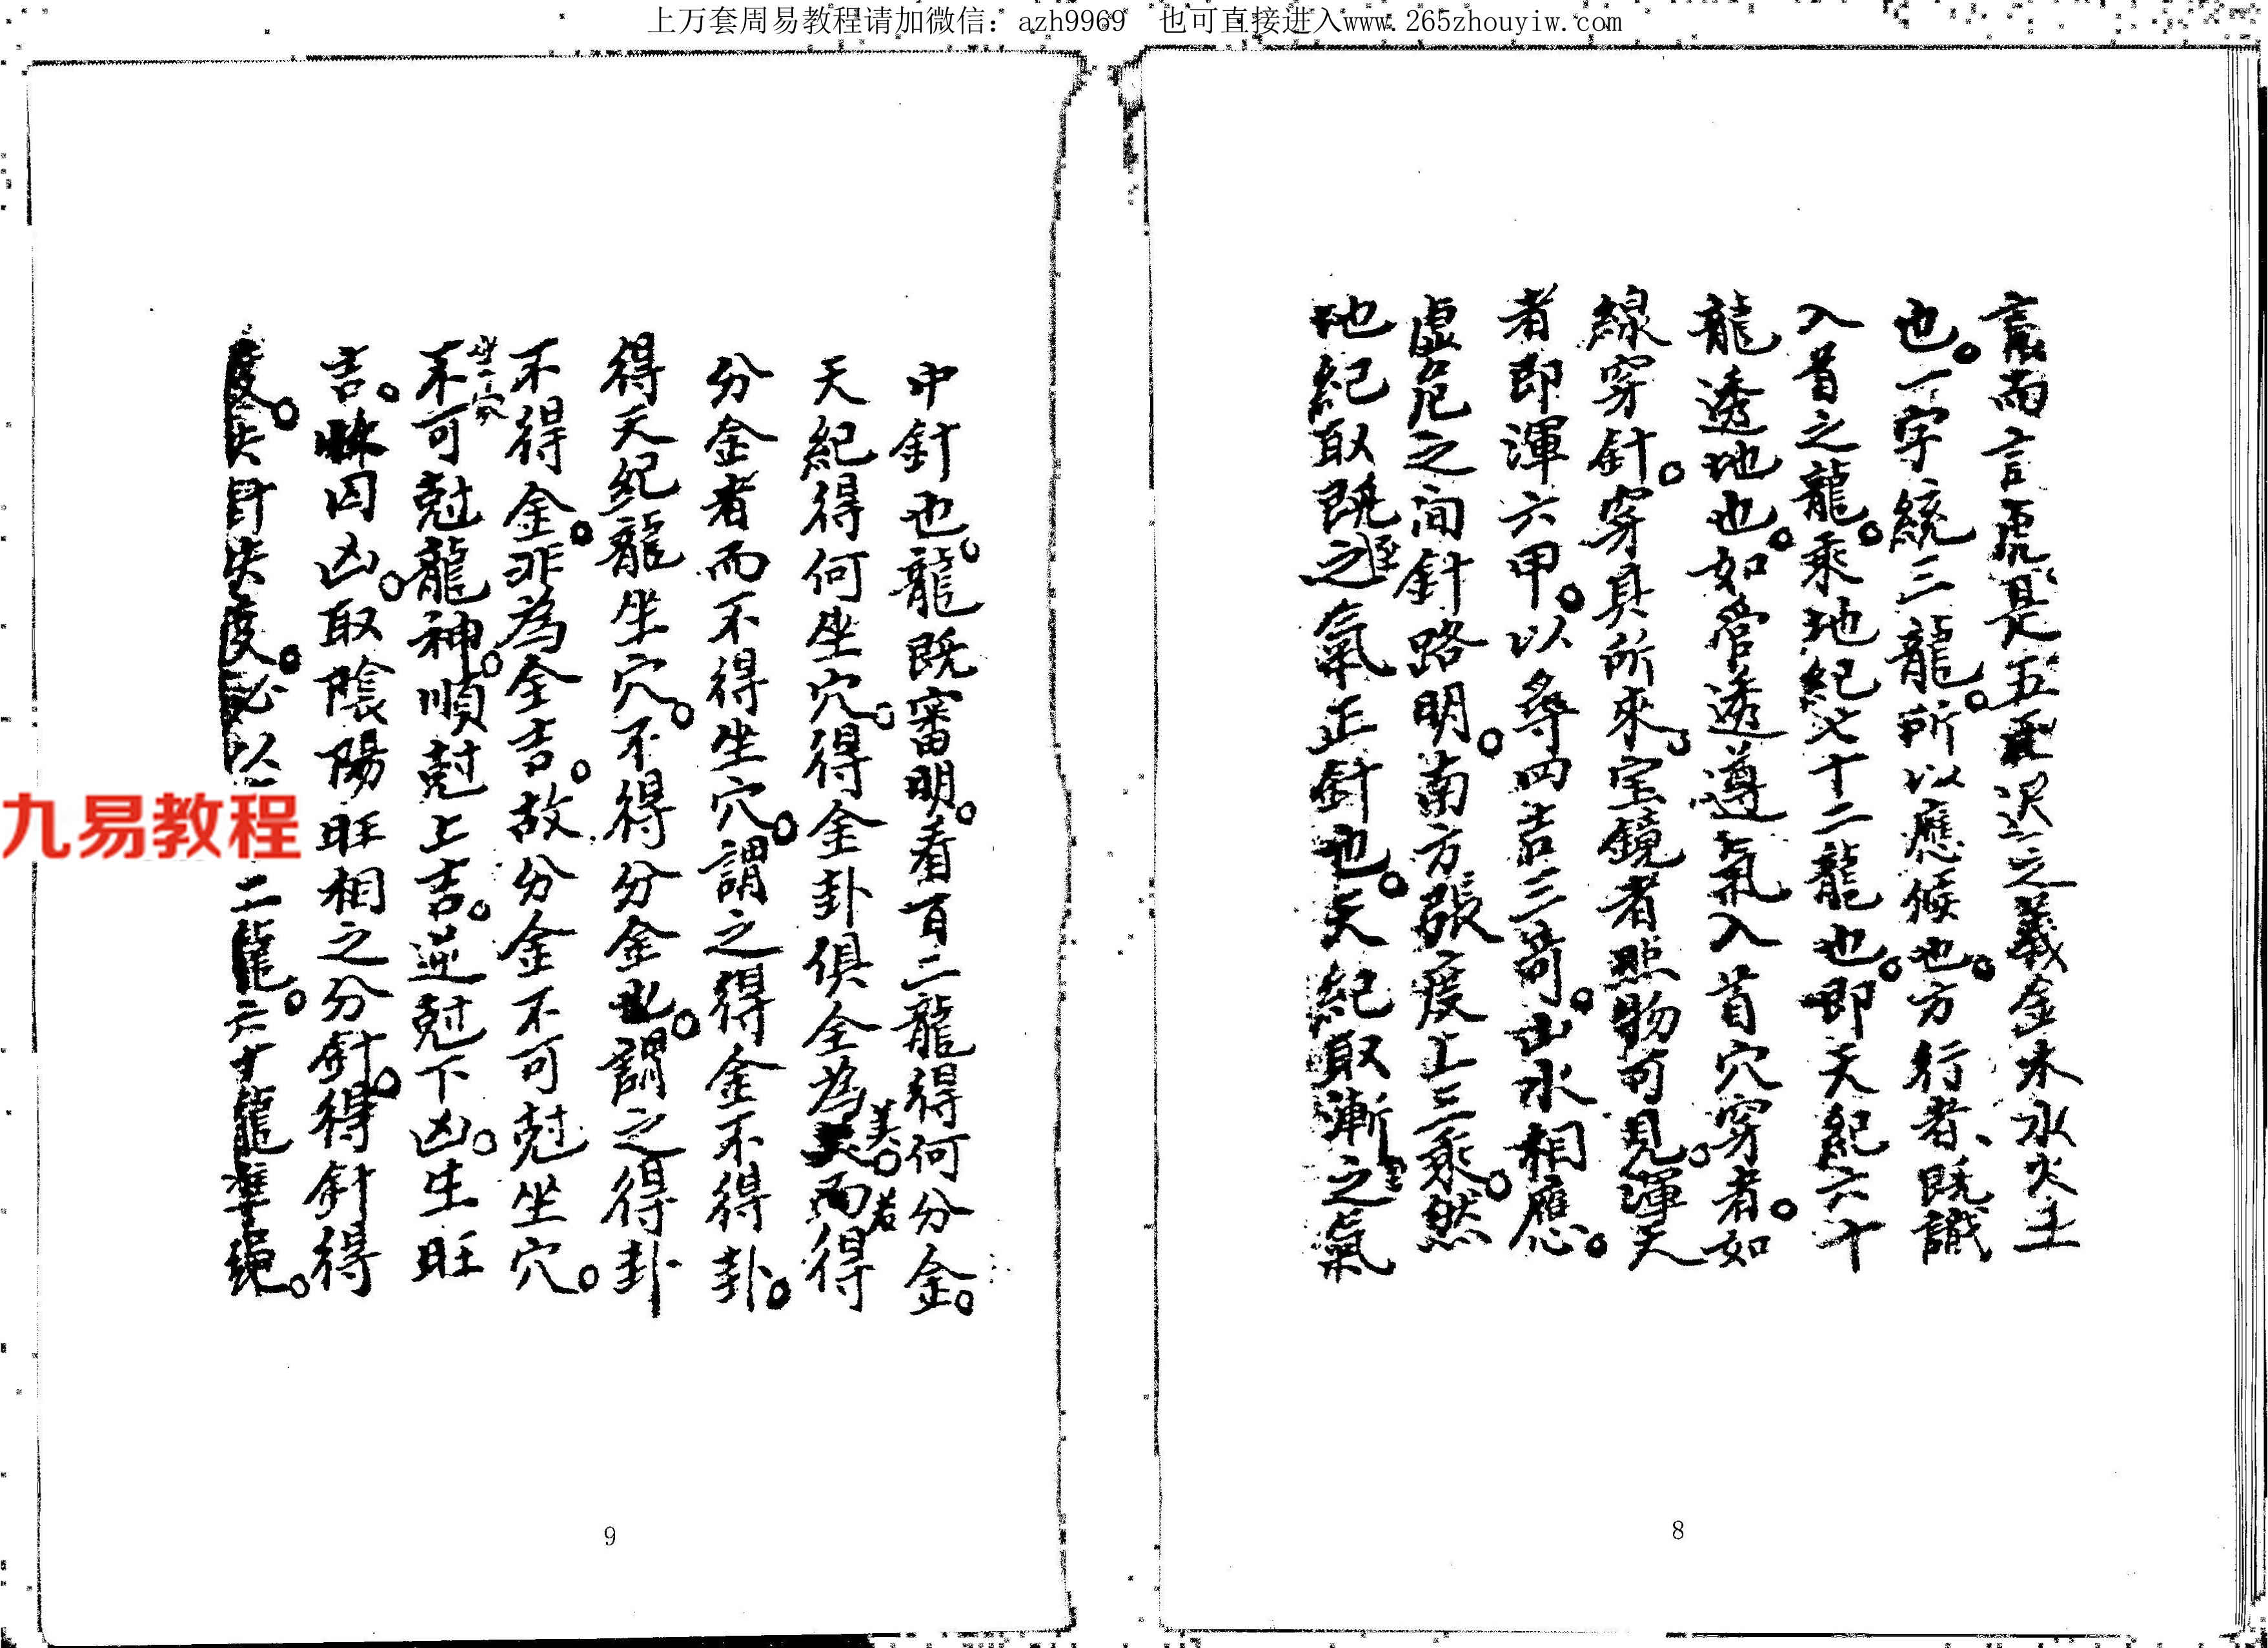 上万套周易教程请加微信：azh9969 也可直接进入www.265zhouyiw.com
言而言是五之義金木水火土
也。一字統三龍。所以應候也。方行者、既識
入首之龍。乘地紀七十二龍也。即天紀六十
龍透地也。如管透遵氣入首穴穿者。如
線穿針。穿具所來。宝鏡者照物可見。渾天
者即渾六甲。以尋四吉三奇。山水相應。
虛危之间針路明。南方張度上三乘。然
地紀取既之氣正針也。天紀取漸之氣
中針也。龍既審明。看百二龍得何分金。
天紀得何坐穴。得金卦俱全為美。若而得
分金者而不得坐穴。謂之得金不得卦。
得天紀龍坐穴。不得分金也。謂之得卦
不得金。非為全吉。故分金不可尅坐穴。
不可尅龍神。順尅上吉。逆尅下凶。生旺
吉。休囚凶。取陰陽旺相之分針。得針得
度。失針失度。必以二龍。六十龍準繩。
九易教程
9
8